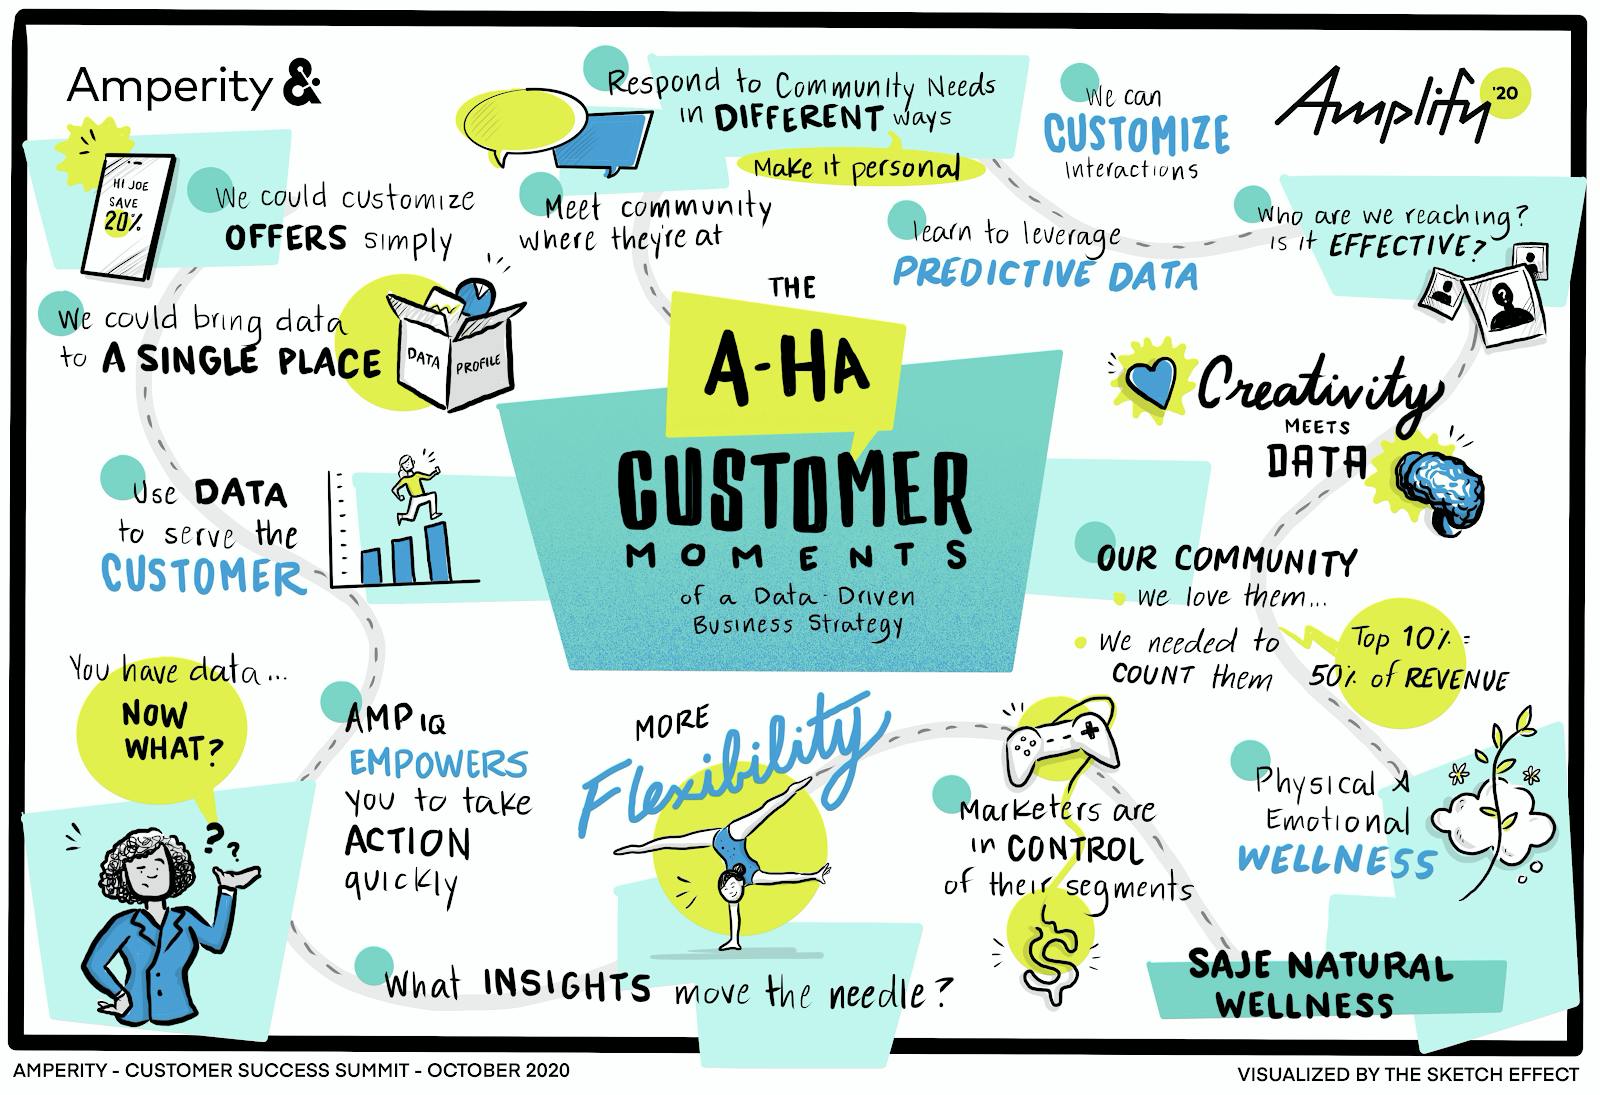 Amperity &
Amplify '20
Respond to Community Needs
in DIFFERENT ways
Make it personal
We can
CUSTOMIZE
Interactions
HI JOE
SAVE
20%
We could customize
OFFERS simply
Meet community
where they're at
learn to leverage
PREDICTIVE DATA
Who are we reaching?
Is it EFFECTIVE?
?
We could bring data
to A SINGLE PLACE
DATA
PROFILE
THE
A-HA
CUSTOMER
MOMENTS
of a Data-Driven
Business Strategy
Creativity
MEETS
DATA
Use DATA
to serve the
CUSTOMER
OUR COMMUNITY
we love them...
We needed to
COUNT them
Top 10% =
50% of REVENUE
You have data...
NOW
WHAT?
? ?
AMP IQ
EMPOWERS
you to take
ACTION
quickly
MORE
Flexibility
Marketers are
in CONTROL
of their segments
$
Physical &
Emotional
WELLNESS
What INSIGHTS move the needle?
SAJE NATURAL
WELLNESS
AMPERITY - CUSTOMER SUCCESS SUMMIT - OCTOBER 2020
VISUALIZED BY THE SKETCH EFFECT